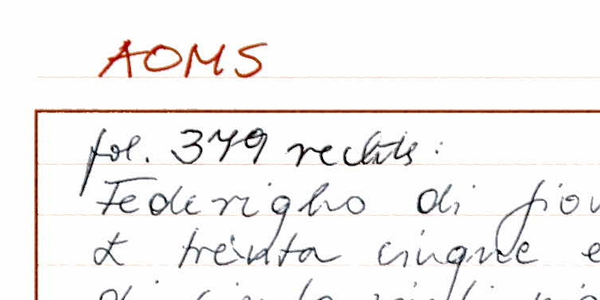 AOMS
fol. 379 rechts:
Federigho di
& trenta cinque e
di